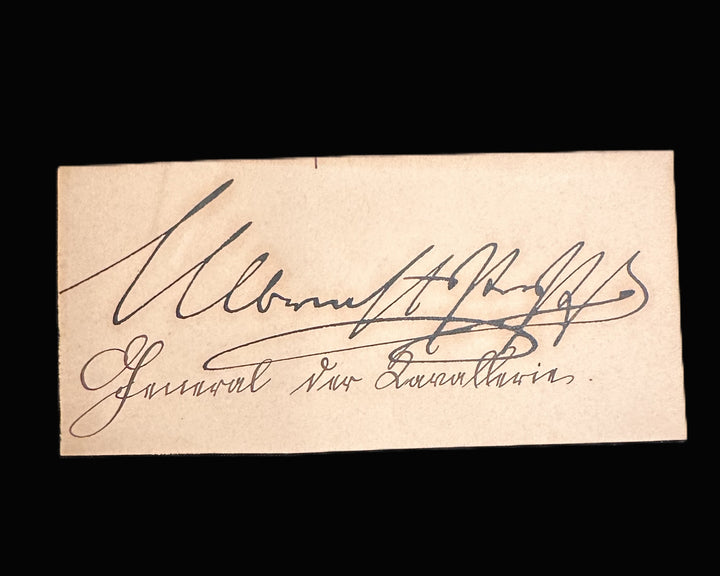 Albrecht
General der Kavallerie.